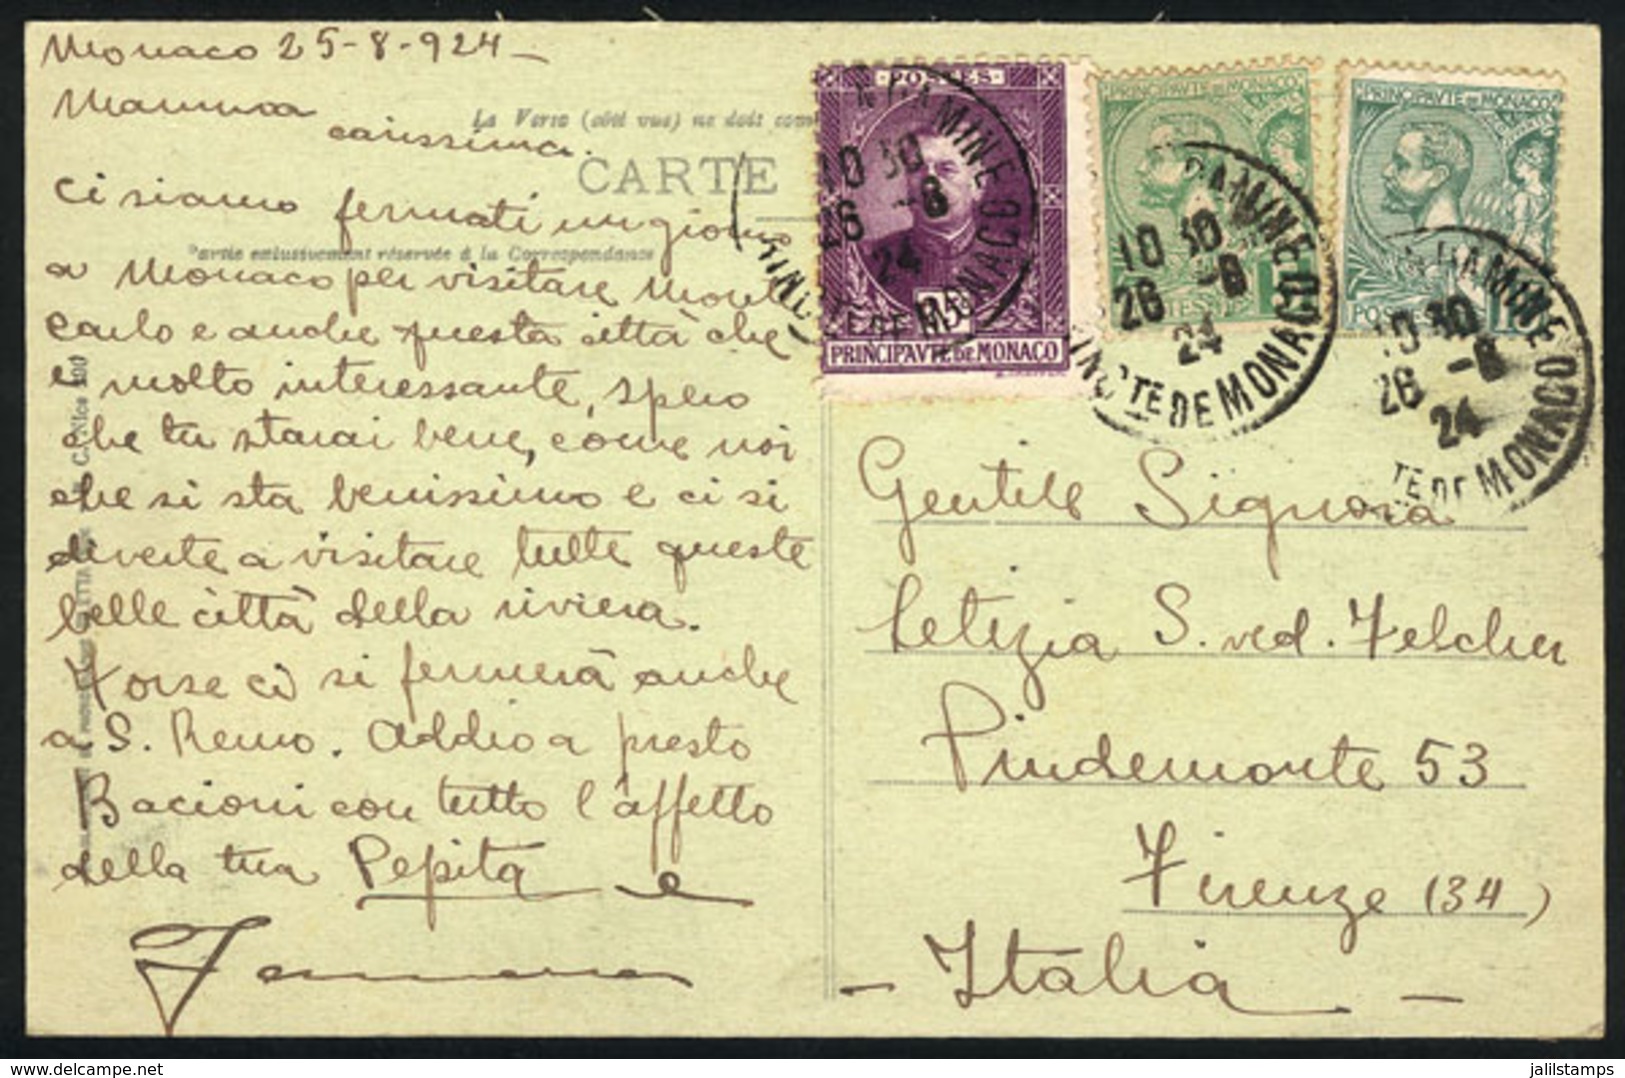 Monaco 25-8-924-
Mamma
carissima.
Ci siamo fermati un giorno
a Monaco per visitare Monte
Carlo e anche questa città che
è molto interessante, spero
che tu starai bene, come noi
che si sta benissimo e ci si
diverte a visitare tutte queste
belle città della riviera.
Forse ci si fermerà anche
a S. Remo. Addio a presto
Bacioni con tutto l'affetto
della tua Pepita e
Le Verso (côté vue) ne doit
CARTE
Partie exclusivement réservée à la Correspondance
POSTES
PRINCIPAVTE DE MONACO
PRINCIPAVTE DE MONACO
PRINCIPAVTE DE MONACO
POSTES
10 30
26 -8
24
DE MONACO
10 30
26 -8
24
TE DE MONACO
10 30
26 -8
24
TE DE MONACO
Gentile Signora
Letizia S. ved. Felcher
Pindemonte 53
Firenze (34)
- Italia -
delcampe.net
jalilstamps